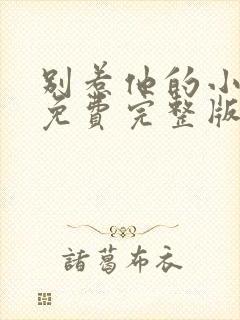 别惹他的小
免費完整版
諸葛布衣